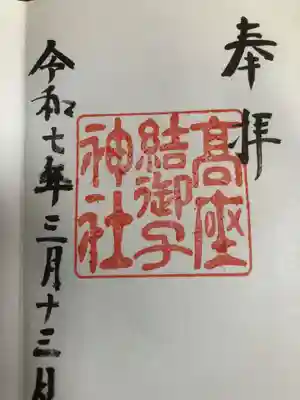 奉拝
髙座
結御子
神社
令和七年三月十三日